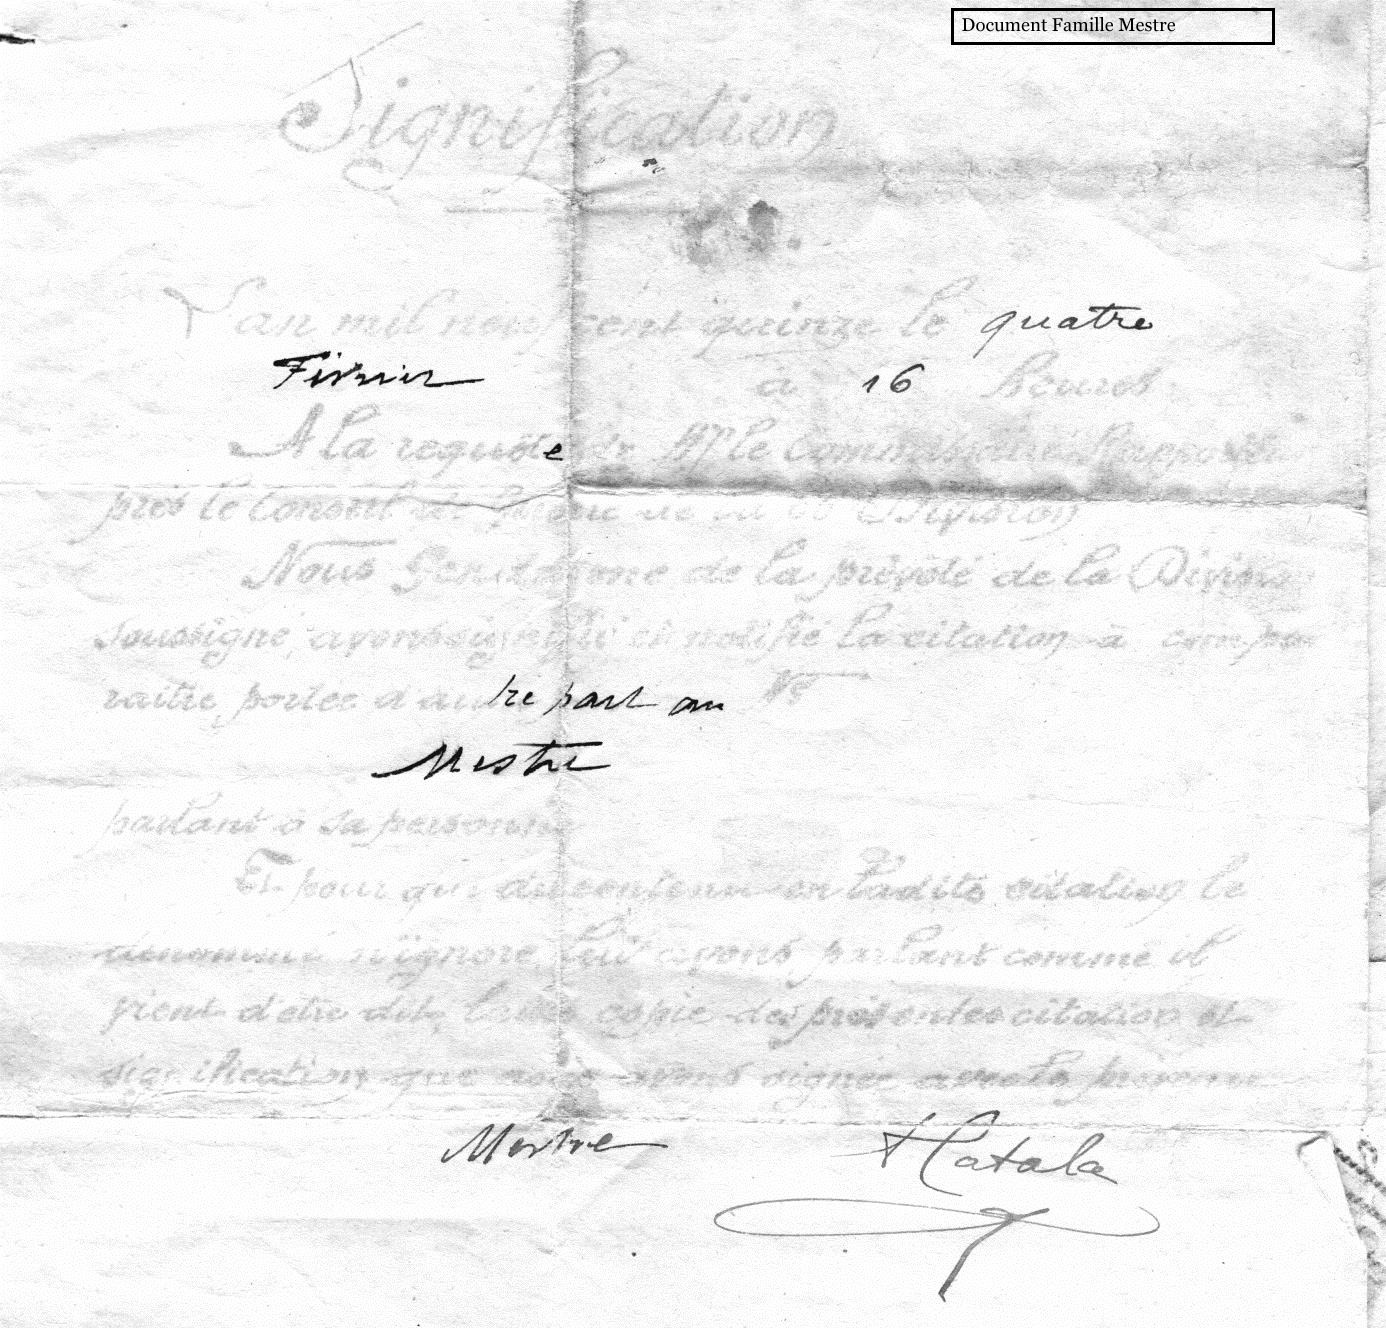 Document Famille Mestre
Signification
L'an mil neuf cent quinze le quatre
Février à 16 heures
A la requête de Mr le Commissaire Rapporteur
près le Conseil de Guerre de la Division
Nous Gendarme de la prévôté de la Division
soussigné, avons signifié et notifié la citation à compa
raître portée d'autre part au Né
Mestre
parlant à sa personne
Et pour que du contenu en ladite citation le
dénommé n'ignore lui avons, parlant comme il
vient d'être dit, laissé copie des présentes citation et
signification que nous avons signée avec le prévenu
Mestre Catala